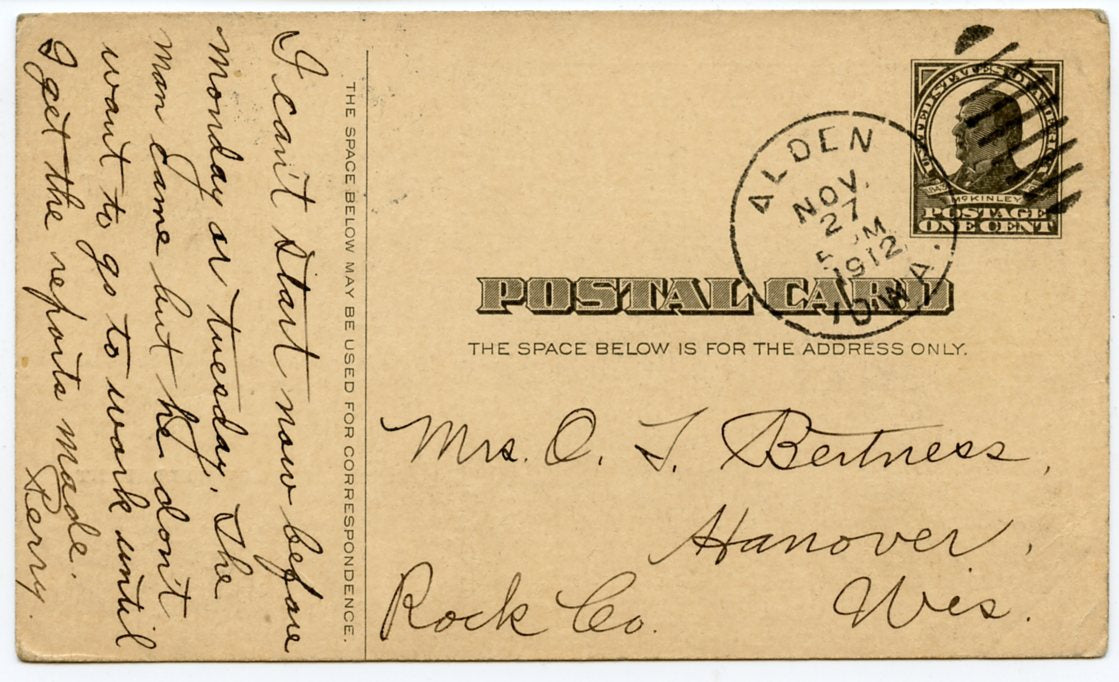 I can't start now before
monday or tuesday. The
man came but he don't
want to go to work until
I get the reports made.
Perry.
THE SPACE BELOW MAY BE USED FOR CORRESPONDENCE.
UNITED STATES OF AMERICA
McKINLEY
POSTAGE
ONE CENT
ALDEN
NOV.
27
5 M
1912
IOWA.
POSTAL CARD
THE SPACE BELOW IS FOR THE ADDRESS ONLY.
Mrs. O. T. Bertness,
Hanover,
Rock Co. Wis.